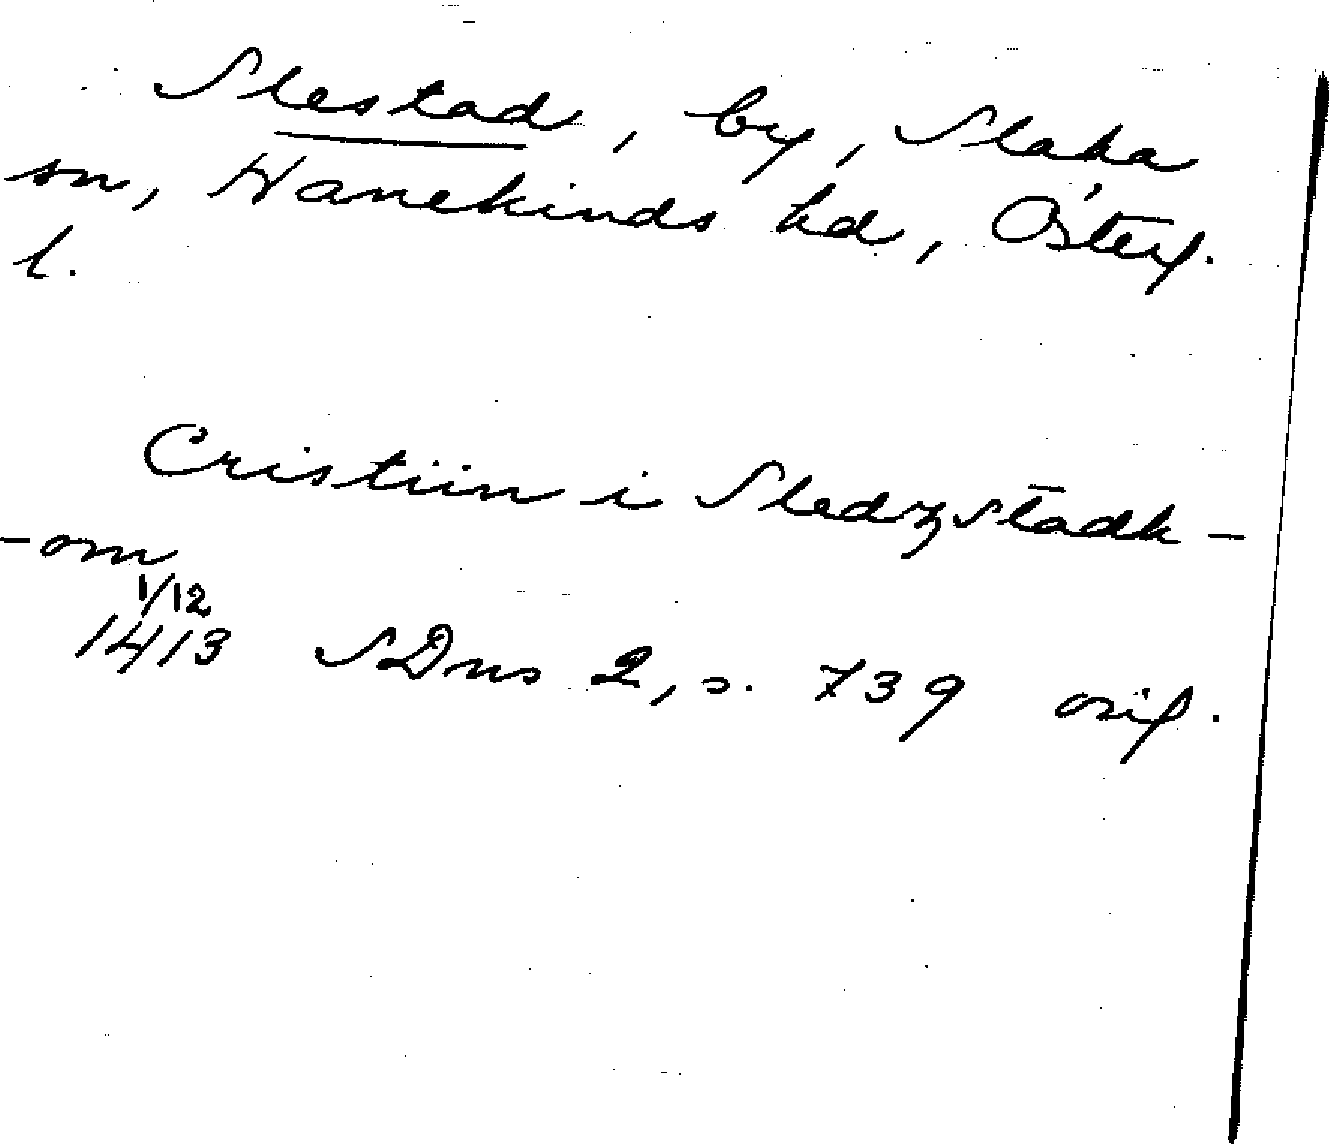 Slestad, by, Slaka
sn, Hanekinds hd, Österg.
l.
Cristiin i Sledzstadh-
-om
1/12
1413 SDns 2, s. 739 orig.